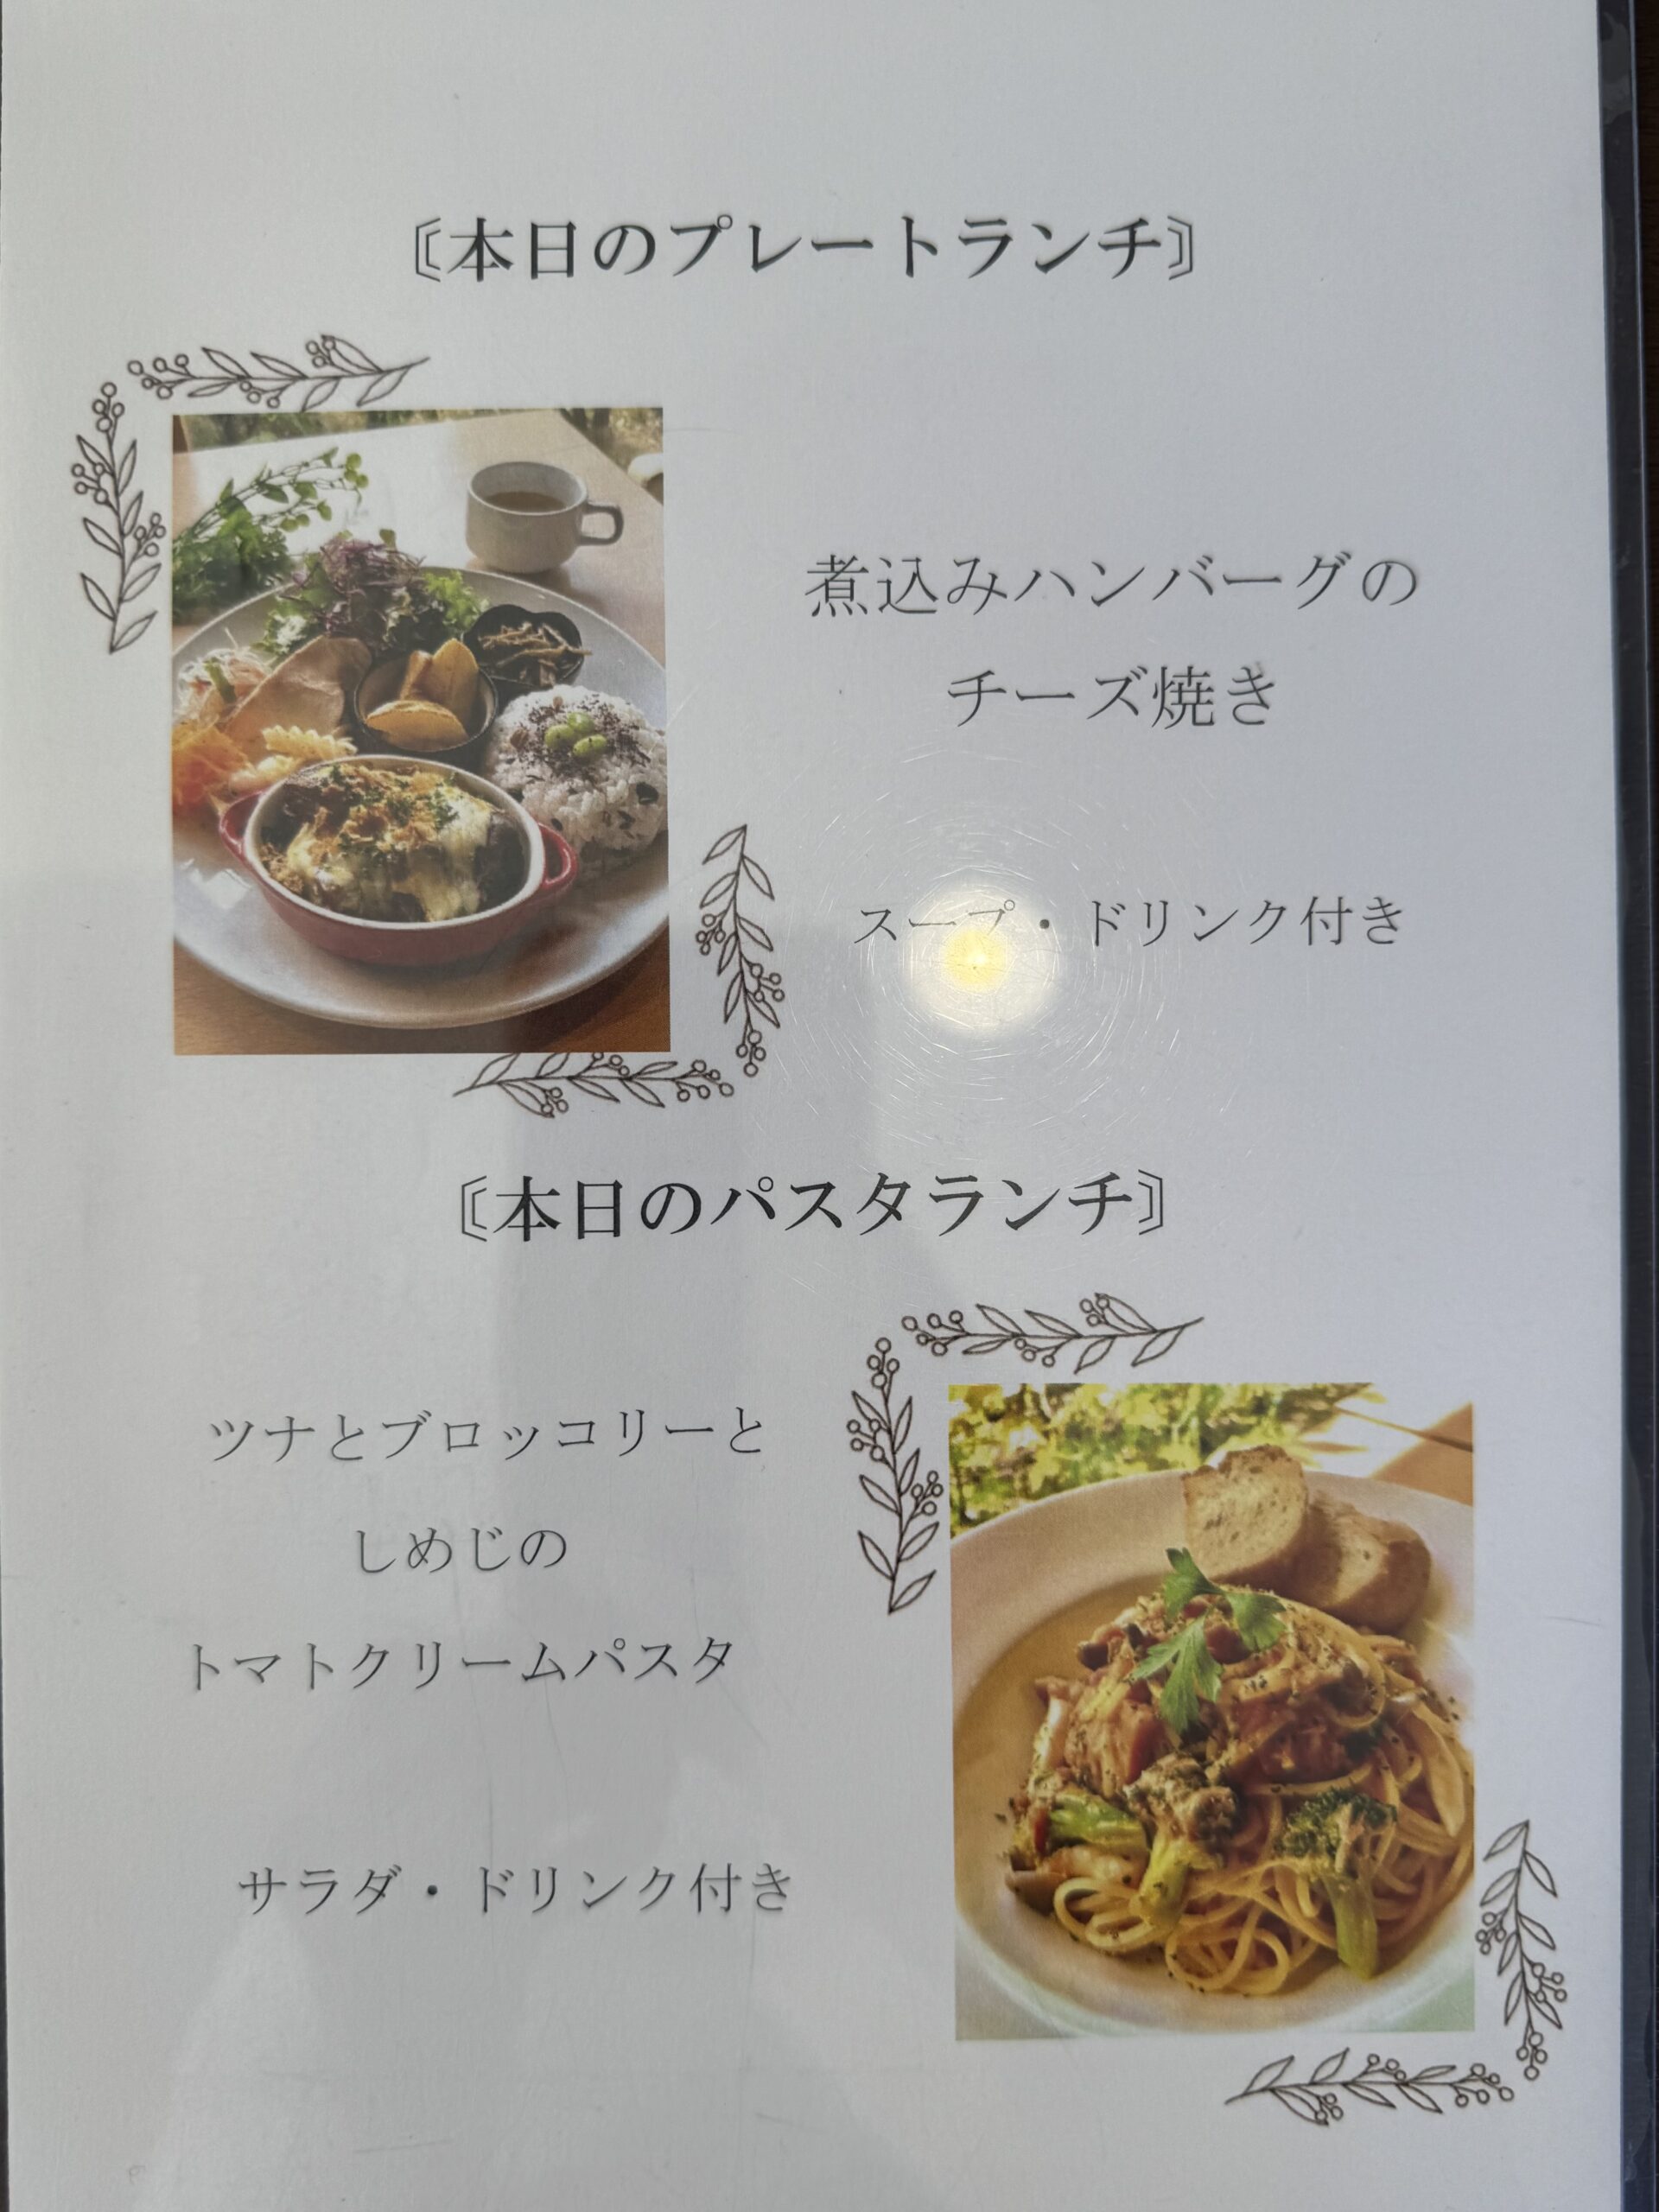 〘本日のプレートランチ〙
煮込みハンバーグの
チーズ焼き
スープ・ドリンク付き
〘本日のパスタランチ〙
ツナとブロッコリーと
しめじの
トマトクリームパスタ
サラダ・ドリンク付き